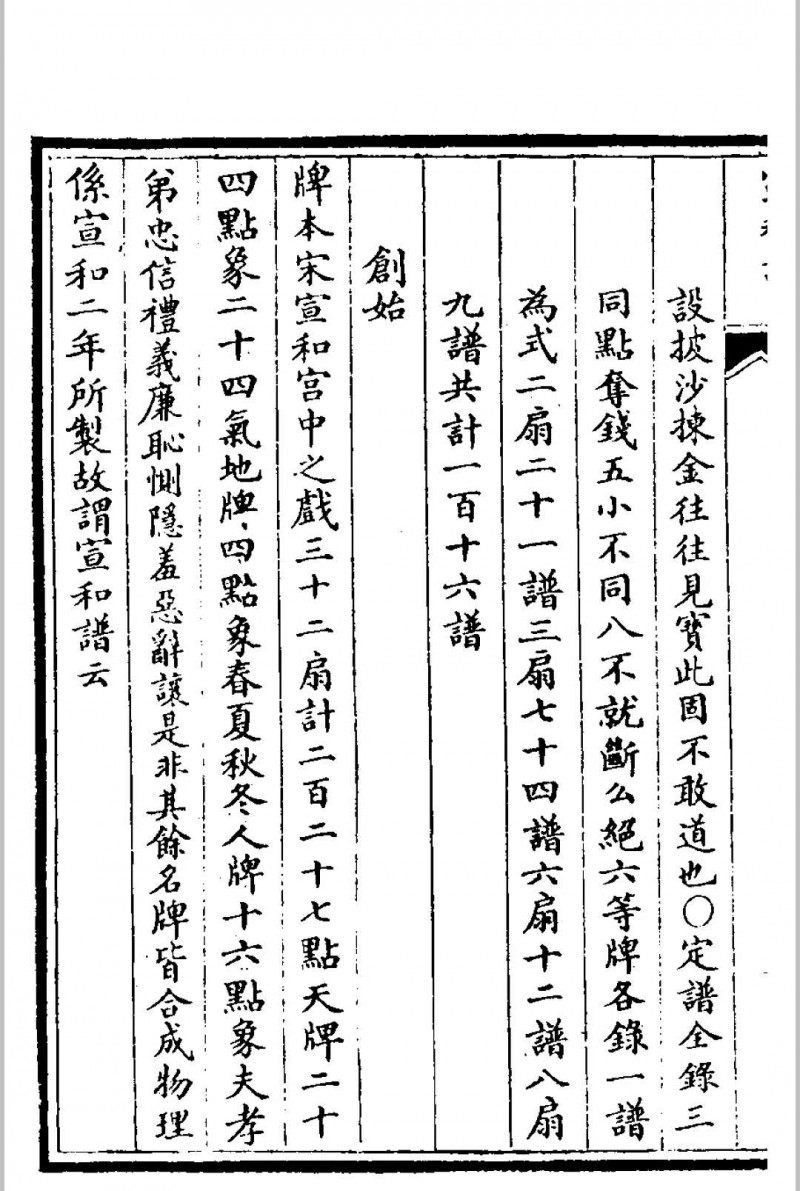 設披沙揀金往往見寳此固不敢道也〇定譜全錄三
同點奪錢五小不同八不就斷么絕六等牌各錄一譜
為式二扇二十一譜三扇七十四譜六扇十二譜八扇
九譜共計一百十六譜
創始
牌本宋宣和宮中之戲三十二扇計二百二十七點天牌二十
四點象二十四氣地牌、四點象春夏秋冬人牌十六點象夫孝
弟忠信禮義廉恥惻隱羞惡辭讓是非其餘名牌皆合成物理
係宣和二年所製故謂宣和譜云